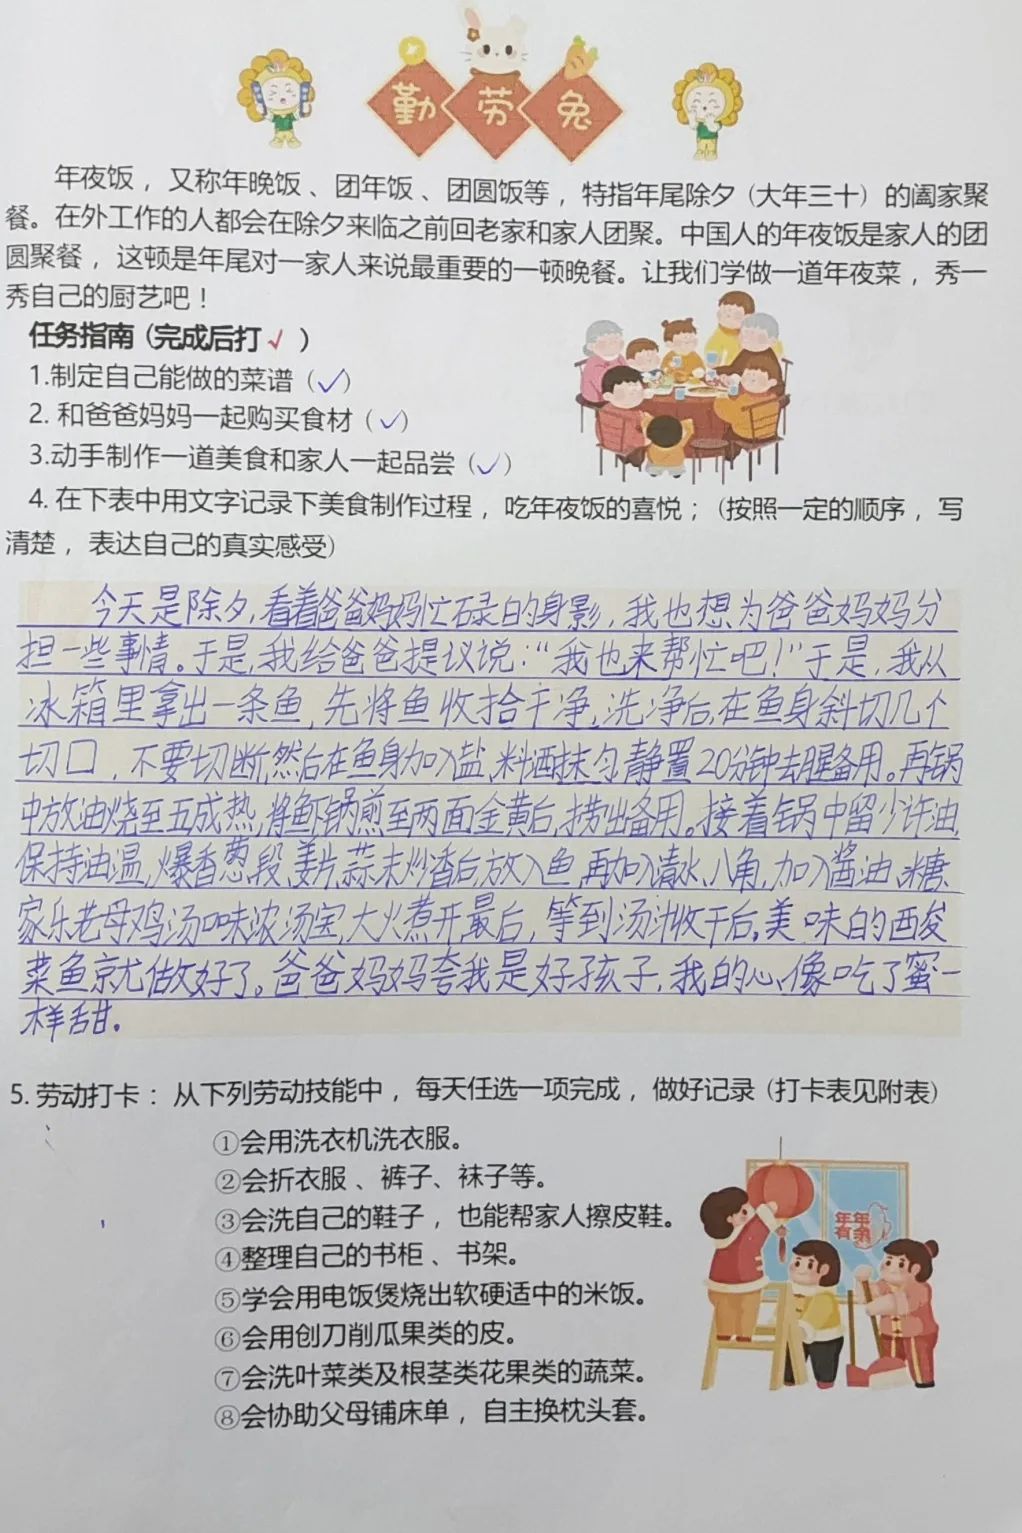 勤劳兔
年夜饭，又称年晚饭、团年饭、团圆饭等，特指年尾除夕（大年三十）的阖家聚
餐。在外工作的人都会在除夕来临之前回老家和家人团聚。中国人的年夜饭是家人的团
圆聚餐，这顿是年尾对一家人来说最重要的一顿晚餐。让我们学做一道年夜菜，秀一
秀自己的厨艺吧！
任务指南（完成后打√）
1.制定自己能做的菜谱（✓）
2. 和爸爸妈妈一起购买食材（✓）
3.动手制作一道美食和家人一起品尝（✓）
4. 在下表中用文字记录下美食制作过程，吃年夜饭的喜悦；（按照一定的顺序，写
清楚，表达自己的真实感受）
今天是除夕，看着爸爸妈妈忙碌的身影，我也想为爸爸妈妈分
担一些事情。于是，我给爸爸提议说：“我也来帮忙吧！”于是，我从
冰箱里拿出一条鱼，先将鱼收拾干净，洗净后，在鱼身斜切几个
切口，不要切断，然后在鱼身加入盐，料酒抹匀，静置20分钟去腥备用。再锅
中放油烧至五成热，将鱼下锅煎至两面金黄后，捞出备用。接着锅中留少许油，
保持油温，爆香葱，段，姜片，蒜末炒香后，放入鱼，再加入清水，八角，加入酱油，糖，
家乐老母鸡汤口味浓汤宝，大火煮开，最后，等到汤汁收干后，美味的西
菜鱼就做好了。爸爸妈妈夸我是好孩子，我的心，像吃了蜜一
样甜。
5. 劳动打卡：从下列劳动技能中，每天任选一项完成，做好记录（打卡表见附表）
①会用洗衣机洗衣服。
②会折衣服、裤子、袜子等。
③会洗自己的鞋子，也能帮家人擦皮鞋。
④整理自己的书柜、书架。
⑤学会用电饭煲烧出软硬适中的米饭。
⑥会用创刀削瓜果类的皮。
⑦会洗叶菜类及根茎类花果类的蔬菜。
⑧会协助父母铺床单，自主换枕头套。
年年
有余